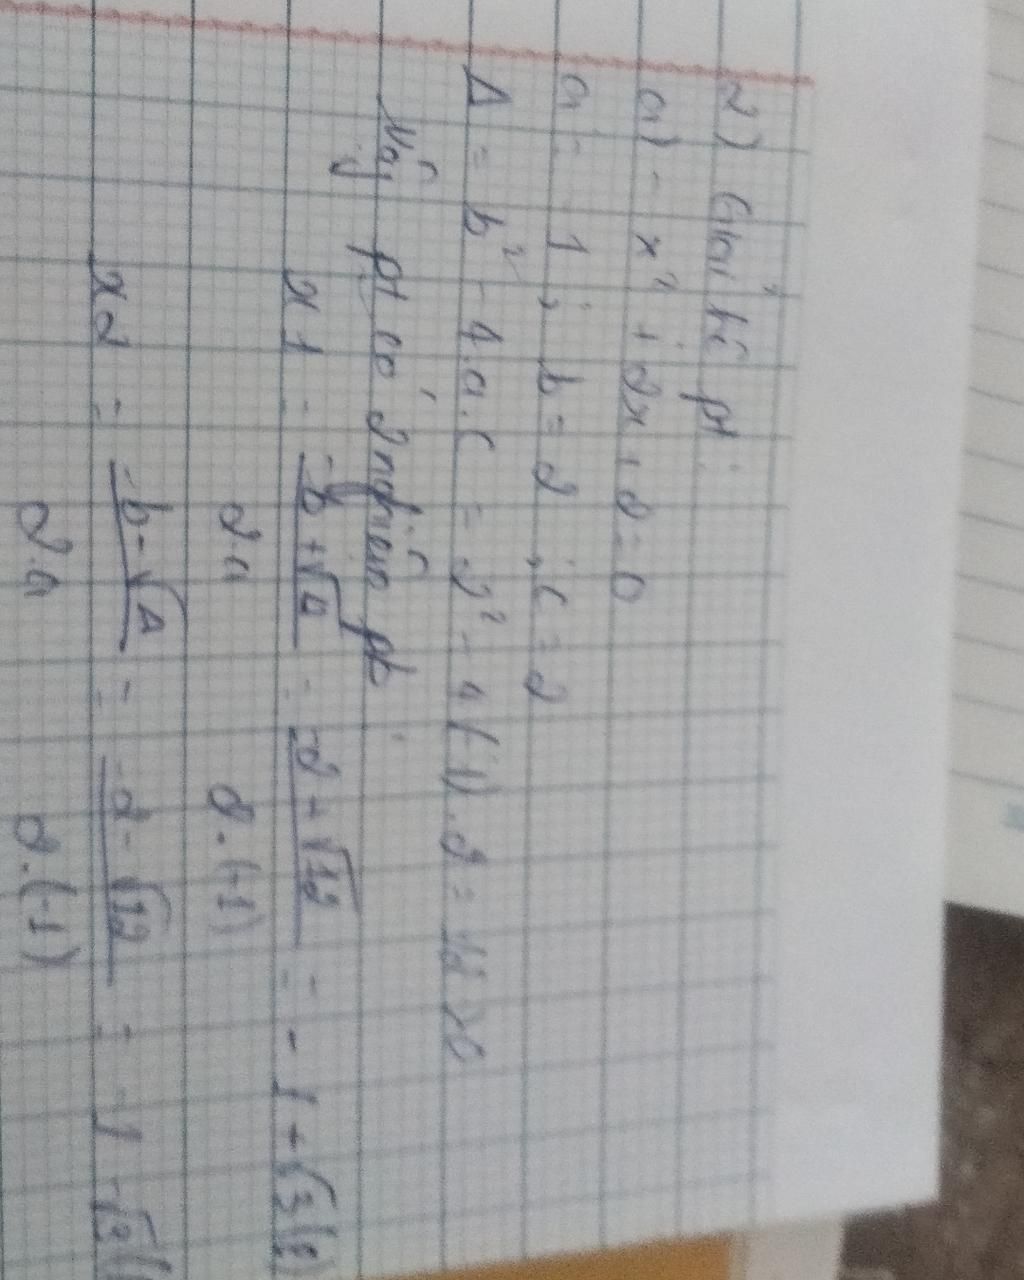 2) Giải hê pt:
a) - x² + 2x + 2 = 0
a = 1 ; b = 2 ; c = 2
Δ = b² - 4.a.c = 2² - 4(-1).2 = 12 > 0
Vậy pt có 2 nghiệm pb
x1 = -b + √Δ / 2.a = -2 + √12 / 2.(-1) = - 1 + √3
x2 = -b - √Δ / 2.a = -2 - √12 / 2.(-1) = 1 - √3